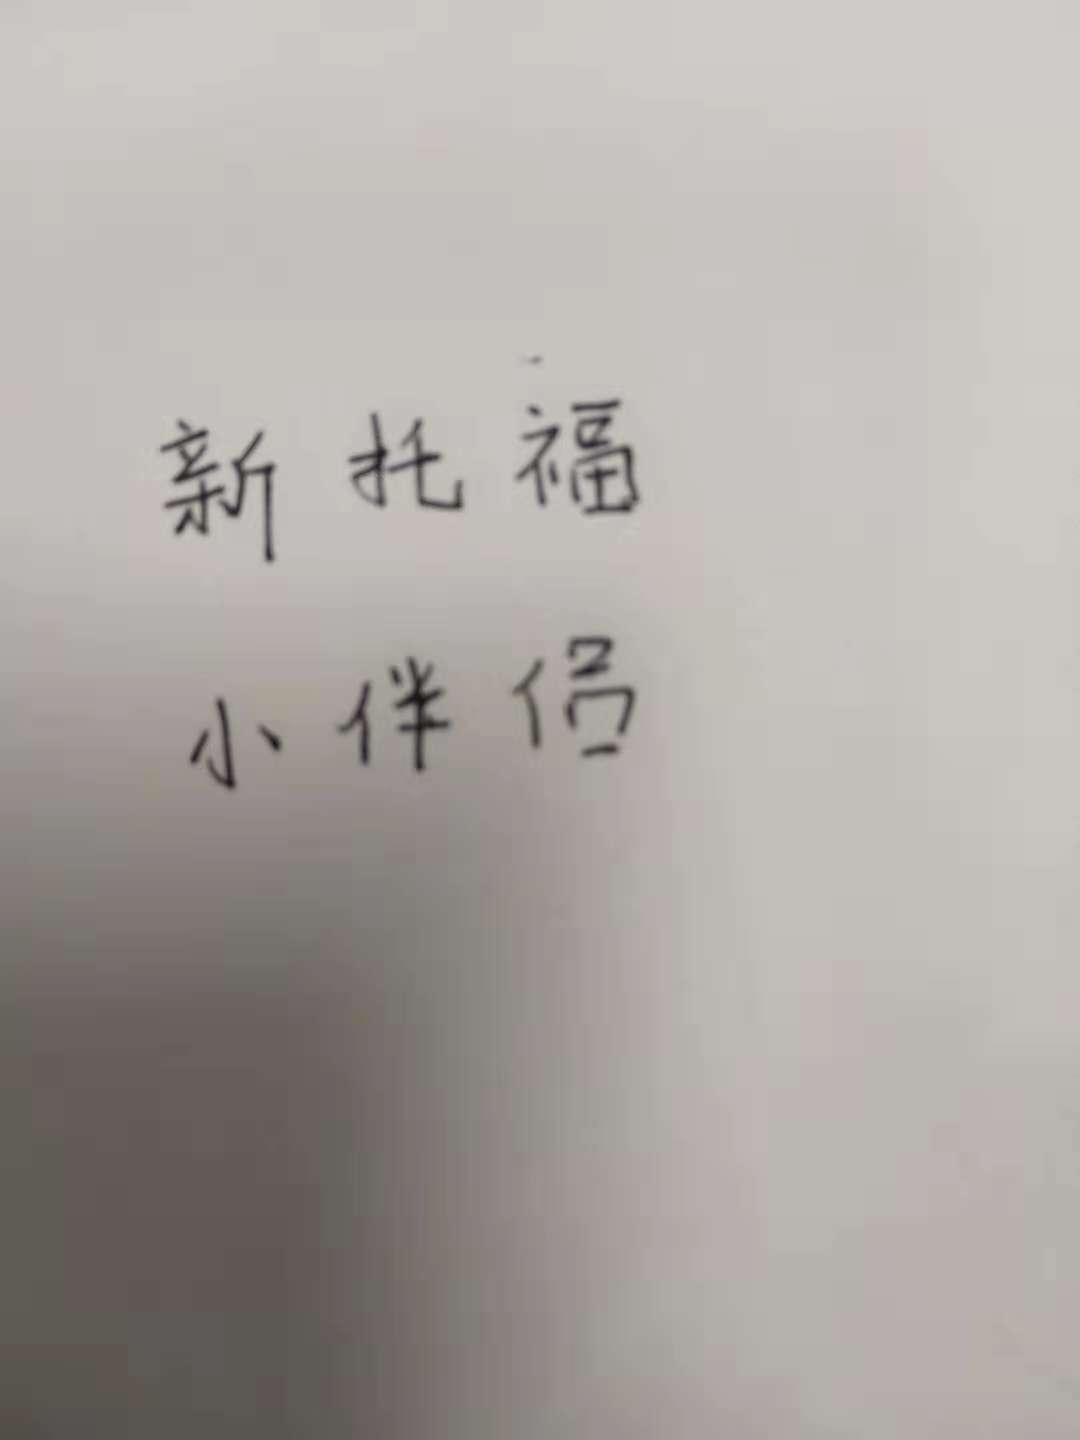 新托福
小伴侣